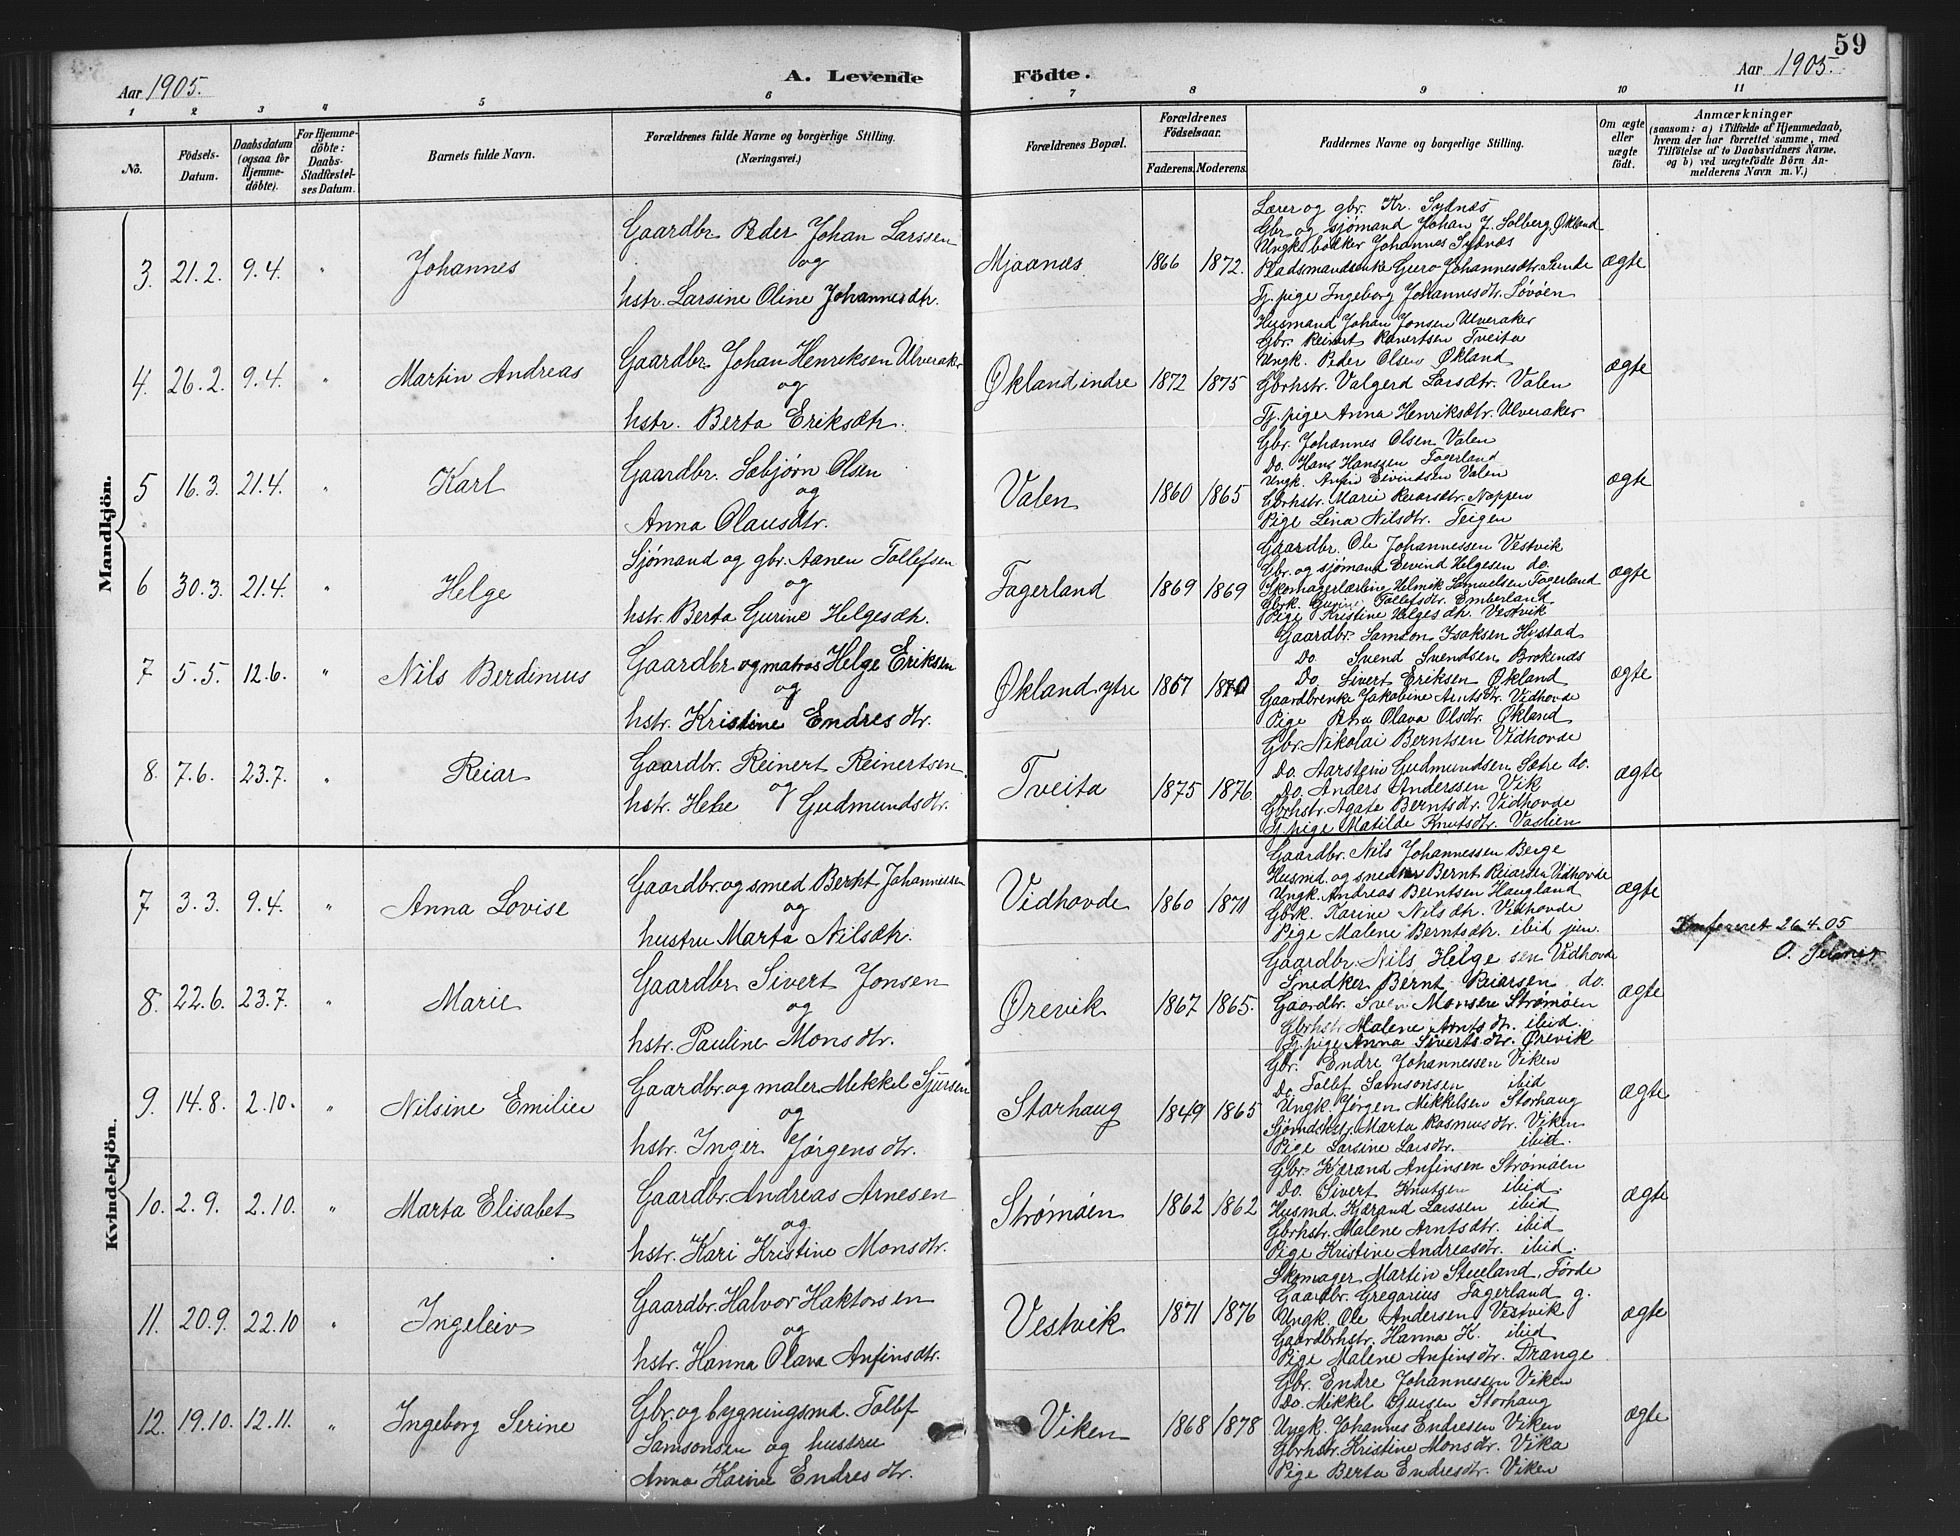 59
Aar 1905.
A. Levende Födte.
Aar 1905.
1 2 3 4 5 6 7 8 9 10 11
No.
Födsels-Datum.
Daabsdatum (ogsaa for Hjemme-döbte).
For Hjemme-döbte: Daabs-Stadfæstel-ses Datum.
Barnets fulde Navn.
Forældrenes fulde Navne og borgerlige Stilling.
(Næringsvei.)
Forældrenes Bopæl.
Forældrenes Födselsaar.
Faderens. Moderens.
Faddernes Navne og borgerlige Stilling.
Om ægte eller uægte födt.
Anmærkninger
(saasom: a) i Tilfælde af Hjemmedaab, hvem der har forrettet samme, med Tilföielse af to Daabsvidners Navne, og b) ved uægtefödte Börn An-melderens Navn m. V.)
Mandkjön.
3. 21.2. 9.4. " Johannes
Gaardbr. Peder Johan Larssen
og
hstr. Larsine Oline Johannesdtr.
Mjaanæs 1866 1872.
Lærer og gbr. Kr. Sydnæs
Gbr og sjømand Johan J. Solberg, Økland
Ungk. bødker Johannes Sydnæs
Pladsmandsenke Guro Johannesdtr. Sunde
Tj. pige Ingeborg Johannesdtr. Løvøen
ægte
4. 26.2. 9.4. " Martin Andreas
Gaardbr. Johan Henriksen Ulveraker
og
hstr. Berta Eriksdtr.
Økland indre 1872 1875
Husmand Johan Jonsen Ulveraker
Gbr. Reinert Reinertsen Tveita
Ungk. Peder Olsen Økland
Gbrhstr. Valgerd Larsdtr. Valen
Tj. pige Anna Henriksdtr. Ulveraker
ægte
5 16.3. 21.4. " Karl
Gaardbr. Sebjørn Olsen
og
Anna Olausdtr.
Valen 1860 1865
Gbr. Johannes Olsen Valen
Do. Hans Hanssen Fagerland
Ungk. Anfin Eivindsen Valen
Gbrhstr. Marie Reiarsdtr. Nappen
Pige Lina Nilsdtr. Teigen
ægte
6 30.3. 21.4. " Helge
Sjømand og gbr. Aanen Tollefsen
og
hstr. Berta Gurine Helgesdtr.
Fagerland 1869 1869
Gaardbr. Ole Johannessen Vestvik
Gbr. og sjømand Eivind Helgesen do.
Skomagerlærling Helmik Samuelsen Fagerland
Gbrk. Gurine Tollefsdtr. Emberland
Pige Kristine Helgesdtr. Vestvik
ægte
7 5.5. 12.6. " Nils Berdinius
Gaardbr. og matros Helge Eriksen
og
hstr. Kristine Endresdtr.
Økland ytre 1867 1870
Gaardbr. Samson Isaksen Hystad
Do Svend Svendsen Brokenæs
Do. Sivert Eriksen Økland
Gaardbrenke Jakobine Arntsdtr. Vidhovde
Pige Petra Olava Olsdtr. Økland
ægte
8. 7.6. 23.7. " Reiar
Gaardbr. Reinert Reinertsen
og
hstr. Hebe Gudmundsdtr.
Tveita 1875 1876
Gbr. Nikolai Berntsen Vidhovde
Do. Aarstein Gudmundsen Sætre do.
Do. Anders Anderssen Vik
Gbrhstr. Agate Berntsdtr. Vidhovde
Tj. pige Matilde Knutsdtr. Vaslien
ægte
Kvindekjön.
7 3.3. 9.4. " Anna Lovise
Gaardbr. og smed Berkt Johannessen
og
hustru Marta Nilsdtr.
Vidhovde 1860 1871
Gaardbr. Nils Johannessen Berge
Husmd. og snedker Bernt Reiarsen Vidhovde
Ungk. Andreas Berntsen Haugland
Gbrk. Karine Nilsdtr. Vidhovde
Pige Malene Berntsdtr. ibid jun.
ægte
Konfereret 26.4.05
O. Selmer
8. 22.6. 23.7. " Marie
Gaardbr. Sivert Jonsen
og
hstr. Pauline Monsdtr.
Ørevik 1867 1865.
Gaardbr. Nils Helgesen Vidhovde
Snedker Bernt Reiarsen do.
Gaardbr. Sven Monsen Strømøen
Gbrhstr Malene Arntsdtr. ibid.
Tj. pige Anna Sivertsdtr. Ørevik
ægte
9. 14.8. 2.10. " Nilsine Emilie
Gaardbr. og maler Mikkel Sjursen
og
hstr. Inger Jørgensdtr.
Storhaug 1849 1865
Gbr. Endre Johannessen Viken
Do Tollef Samsonsen ibid
Ungk. Jørgen Mikkelsen Storhaug
Sjømdshstr. Marta Rasmusdtr. Viken
Pige Larsine Larsdtr. ibid.
ægte
10. 2.9. 2.10. " Marta Elisabet
Gaardbr. Andreas Arnesen
og
hstr. Kari Kristine Monsdtr.
Strømøen 1862 1862
Gbr. Kjerand Anfinsen Strømøen
Do. Sivert Knutsen ibid.
Husmd. Kjerand Larssen ibid
Gbrhstr. Malene Arntsdtr. ibid
Pige Kristine Andreasdtr. ibid.
ægte
11. 20.9. 22.10 " Ingeleiv
Gaardbr. Halvor Haktorsen
og
hstr. Hanna Olava Anfinsdtr.
Vestvik 1871 1876
Skomager Martin Stueland, Førde
Gaardbr. Gregorius Fagerland g.
Ungk. Ole Andersen Vestvik
Gaardbrhstr. Hanna H. ibid
Pige Malene Anfinsdtr. Drange
ægte
12. 19.10. 12.11. " Ingeborg Serine
Gbr. og bygningsmd. Tollef
Samsonsen og hustru
Anna Karine Endresdtr.
Viken 1868 1878
Gbr. Endre Johannessen Viken
Do. Mikkel Sjursen Storhaug
Ungk. Johannes Endresen Viken
Gbrhstr. Kristine Monsdtr. Vika
Pige Berta Endresdtr. Viken
ægte